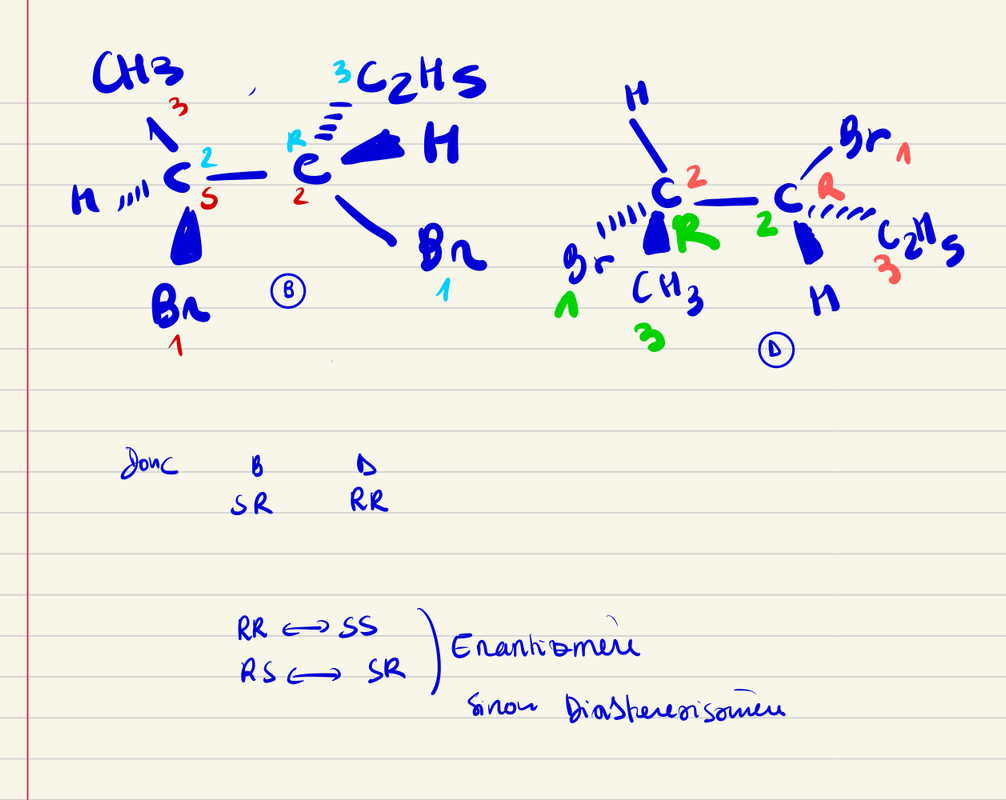 CH3 3 C2H5
3 R H
H C 2 S C 2
Br B Br
1 1
H Br 1
C 2 R 2 C R C2H5 3
Br CH3 H
1 3 D
Donc B D
SR RR
RR ⟷ SS
RS ⟷ SR
Enantiomère
Sinon Diastereoisomère